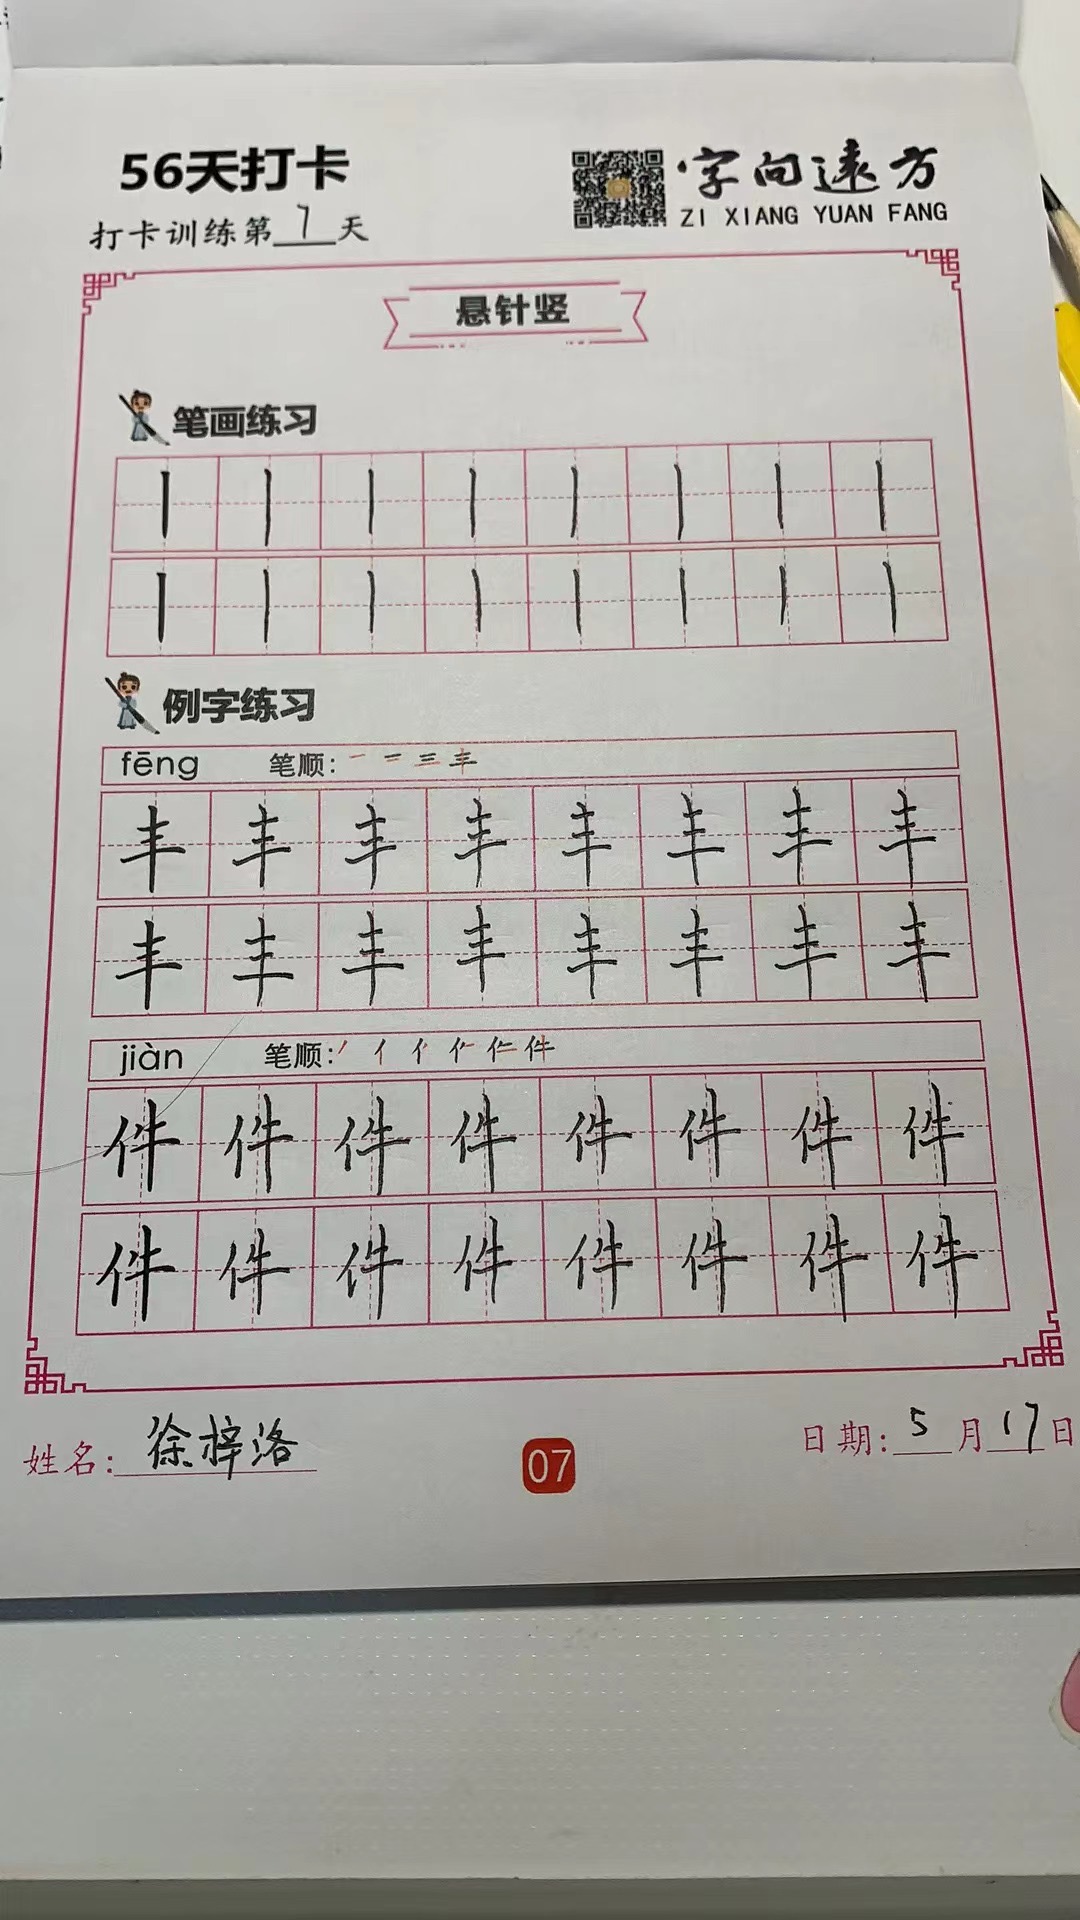 56天打卡
字向远方
打卡训练第7天
ZI XIANG YUAN FANG
悬针竖
笔画练习
丨 丨 丨 丨 丨 丨 丨 丨
丨 丨 丨 丨 丨 丨 丨 丨
例字练习
fēng 笔顺: 一 二 三 丰
丰 丰 丰 丰 丰 丰 丰 丰
丰 丰 丰 丰 丰 丰 丰 丰
jiàn 笔顺:
件 件 件 件 件 件 件 件
件 件 件 件 件 件 件 件
姓名: 徐梓洛
07
日期: 5月17日